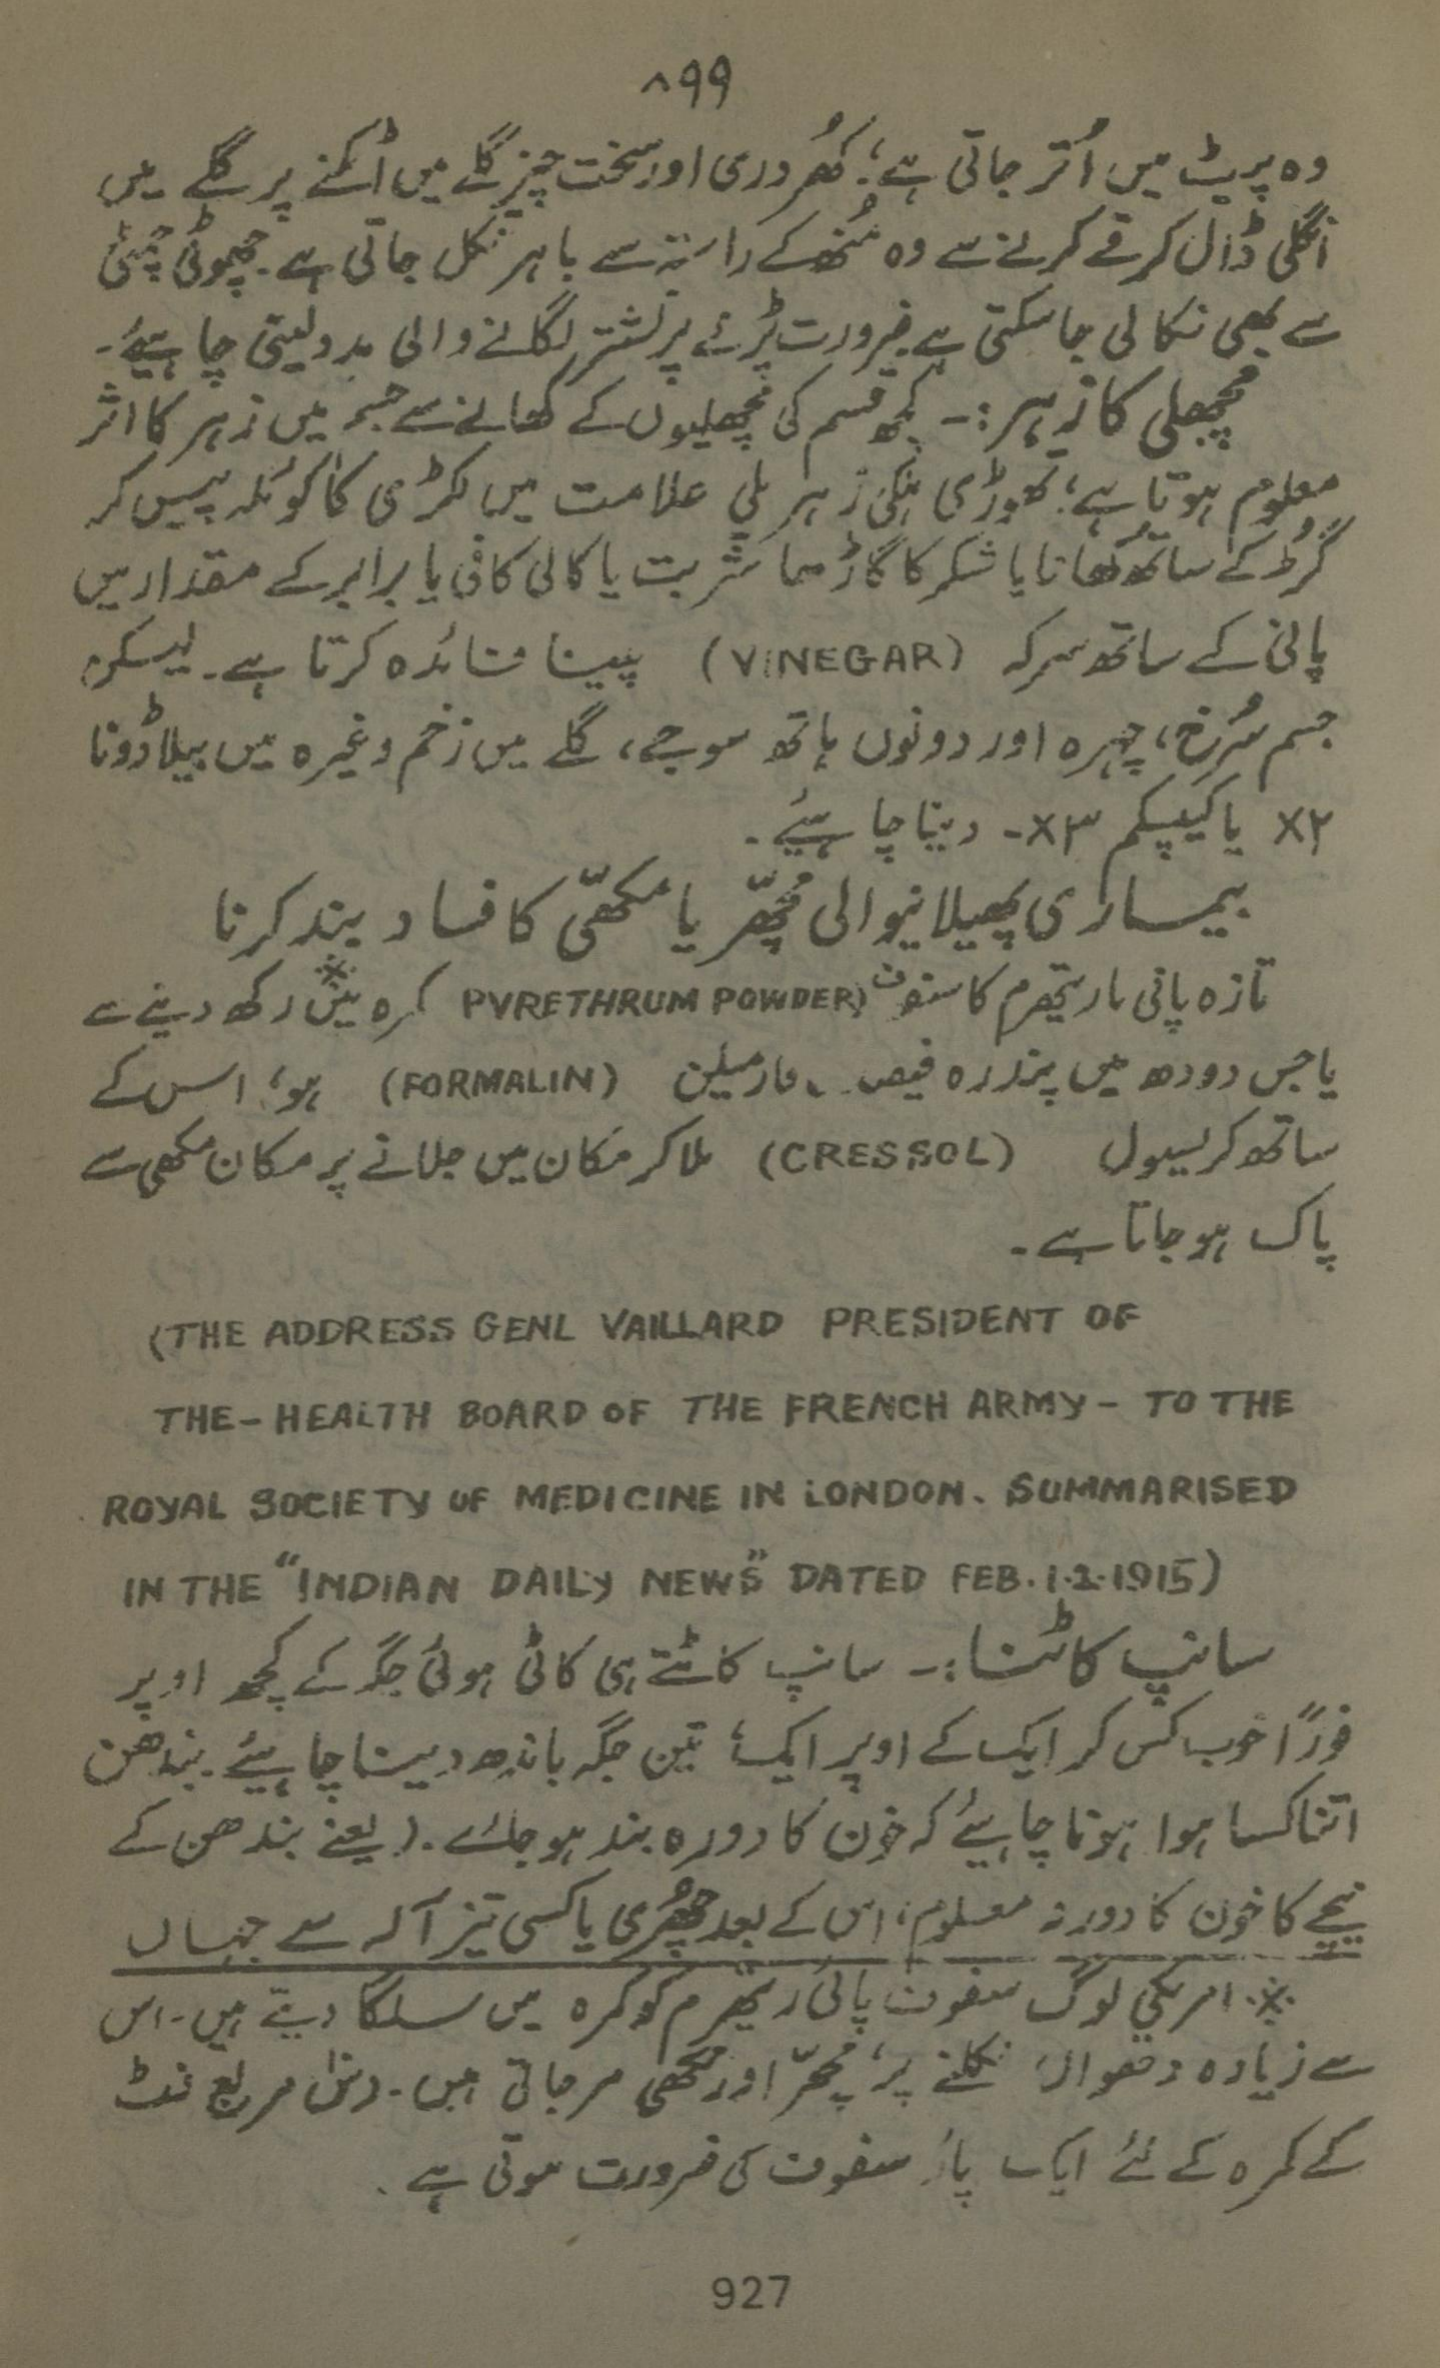 ۸۹۹
وہ پیٹ میں اُتر جاتی ہے؛ کھُردری اور سخت چیز گلے میں اٹکنے پر گلے میں
انگلی ڈال کر قے کرنے سے وہ مُنھ کے راستہ سے باہر نکل جاتی ہے۔ چھوٹی چمٹی
سے بھی نکالی جا سکتی ہے۔ ضرورت پڑنے پر نشتر لگانے والی مدد لینی چاہیئے۔
مچھلی کا زہر:۔ کچھ قسم کی مچھلیوں کے کھانے سے جسم میں زہر کا اثر
معلوم ہوتا ہے؛ تھوڑی ہلکی زہریلی علامت میں لکڑی کا کوئلہ پیس کر
گُڑ کے ساتھ کھانا یا شکر کا گاڑھا شربت یا کالی کافی یا برابر کے مقدار میں
پانی کے ساتھ سرکہ (VINEGAR) پینا فائدہ کرتا ہے۔ لیکن
جسم سُرخ، چہرہ اور دونوں ہاتھ سوجے، گلے میں زخم وغیرہ میں بیلاڈونا
۲x یا کیپسکم ۳x۔ دینا چاہیئے۔
بیماری پھیلانیوالی مچھّر یا مکھّی کا فساد بند کرنا
تازہ پائی ریتھرم کا سفوف (PVRETHRUM POWDER کمرہ میں※ رکھ دینے سے
یا جس دودھ میں پندرہ فیصد فارمیلن (FORMALIN) ہو، اس کے
ساتھ کریسول (CRESSOL) ملا کر مکان میں جلانے پر مکان مکھی سے
پاک ہو جاتا ہے۔
(THE ADDRESS GENL VAILLARD PRESIDENT OF
THE-HEALTH BOARD OF THE FRENCH ARMY- TO THE
ROYAL SOCIETY OF MEDICINE IN LONDON. SUMMARISED
IN THE "INDIAN DAILY NEWS" DATED FEB. 1.2.1915)
سانپ کاٹنا:۔ سانپ کاٹتے ہی کاٹی ہوئی جگہ کے کچھ اوپر
فوراً خوب کس کر ایک کے اوپر ایک، تین جگہ باندھ دینا چاہیئے۔ بندھن
اتنا کسا ہوا ہونا چاہیئے کہ خون کا دورہ بند ہو جائے۔ (یعنے بندھن کے
نیچے کا خون کا دورہ نہ معلوم، اس کے بعد چھُری یا کسی تیز آلہ سے جہاں
※ امریکی لوگ سفوف پائی ریتھرم کو کمرہ میں سلگا دیتے ہیں۔ اس
سے زیادہ دھواں نکلنے پر، مچھّر اور مکھی مر جاتی ہیں۔ دس مربع فٹ
کے کمرہ کے لئے ایک پاؤ سفوف کی ضرورت ہوتی ہے۔
927